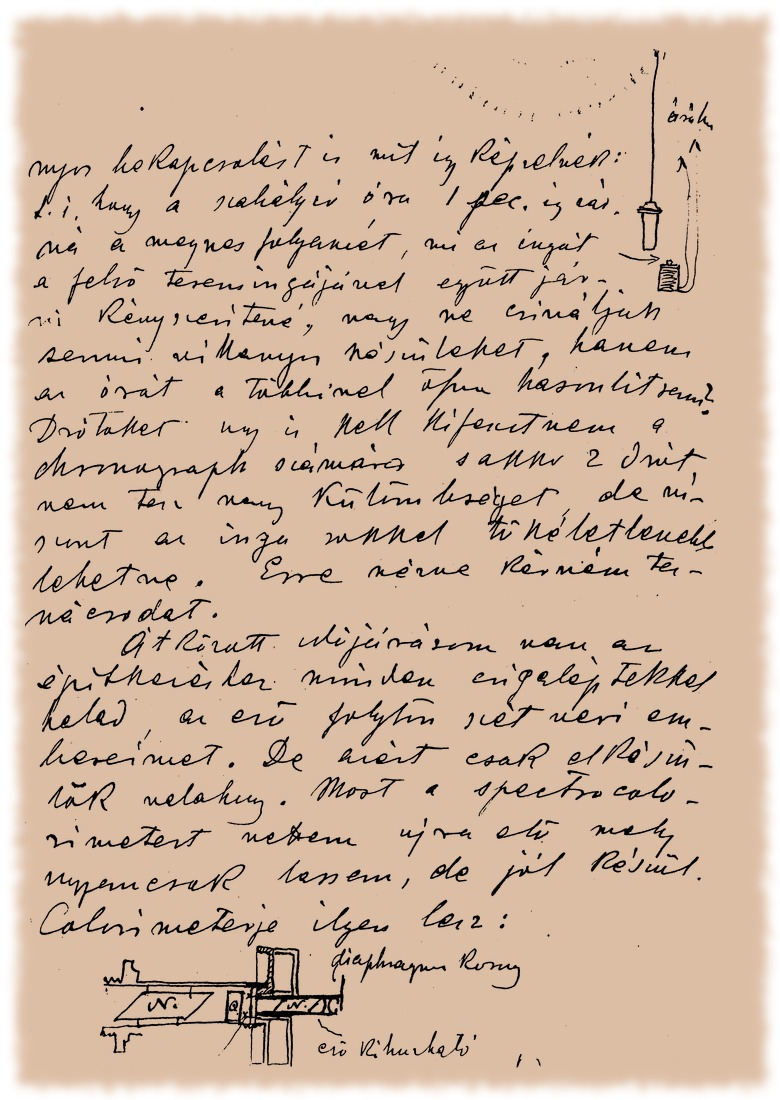 órába
nyos bekapcsolást is mit így képzelnék:
t.i. hogy a szabályzó óra 1 sec. ig zár-
ná a mágnes folyamát, mi az ingát
a felső terem ingájával együtt jár-
ni kényszerítené, vagy ne csináljak
semmi villanyos készüléket, hanem
az órát a többivel össze hasonlítsam?
Drótokat úgy is kell kifeszítnem a
chronograph számára s akkor 2 drót
nem tesz nagy különbséget, de vi-
szont az inga sokkal tökéletlenebb
lehetne. Erre nézve kérném ta-
nácsodat.
Átkozott időjárásom van az
építkezés minden csigaléptekkel
halad, az eső folyton szét veri em-
bereimet. De azért csak elkészü-
lök valahogy. Most a spectrocolo-
rimetert vettem újra elő mely
ugyancsak lassan, de jól készül.
Colorimeterje ilyen lesz:
diaphragma korong
N. Q N.
ez kihúzható